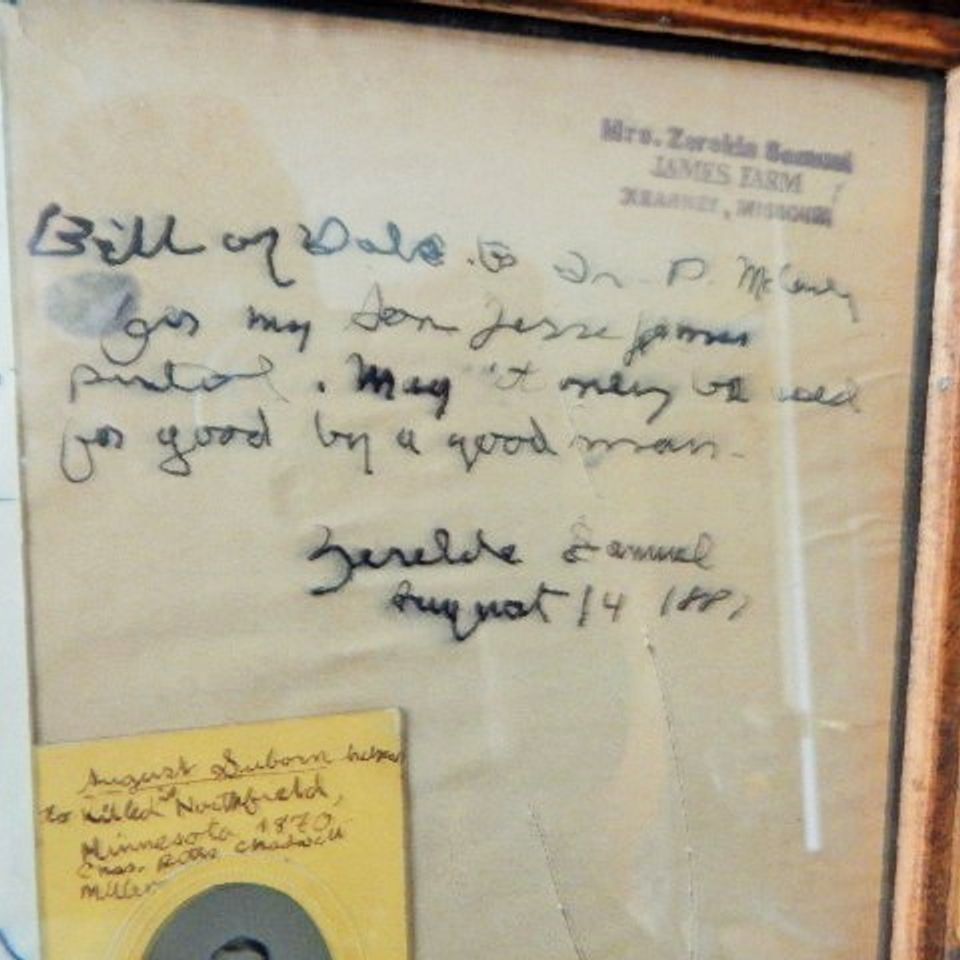 Mrs. Zerelda Samuel
JAMES FARM
KEARNEY, MISSOURI
Bill of Sale. to Dr. P.
for my Son Jesse James
pistol. May it only be used
for good by a good man.
Zerelda Samuel
August 14 188
August Suborn
to killed Northfield,
Minnesota 1870
Chas. Chadwell
Miller